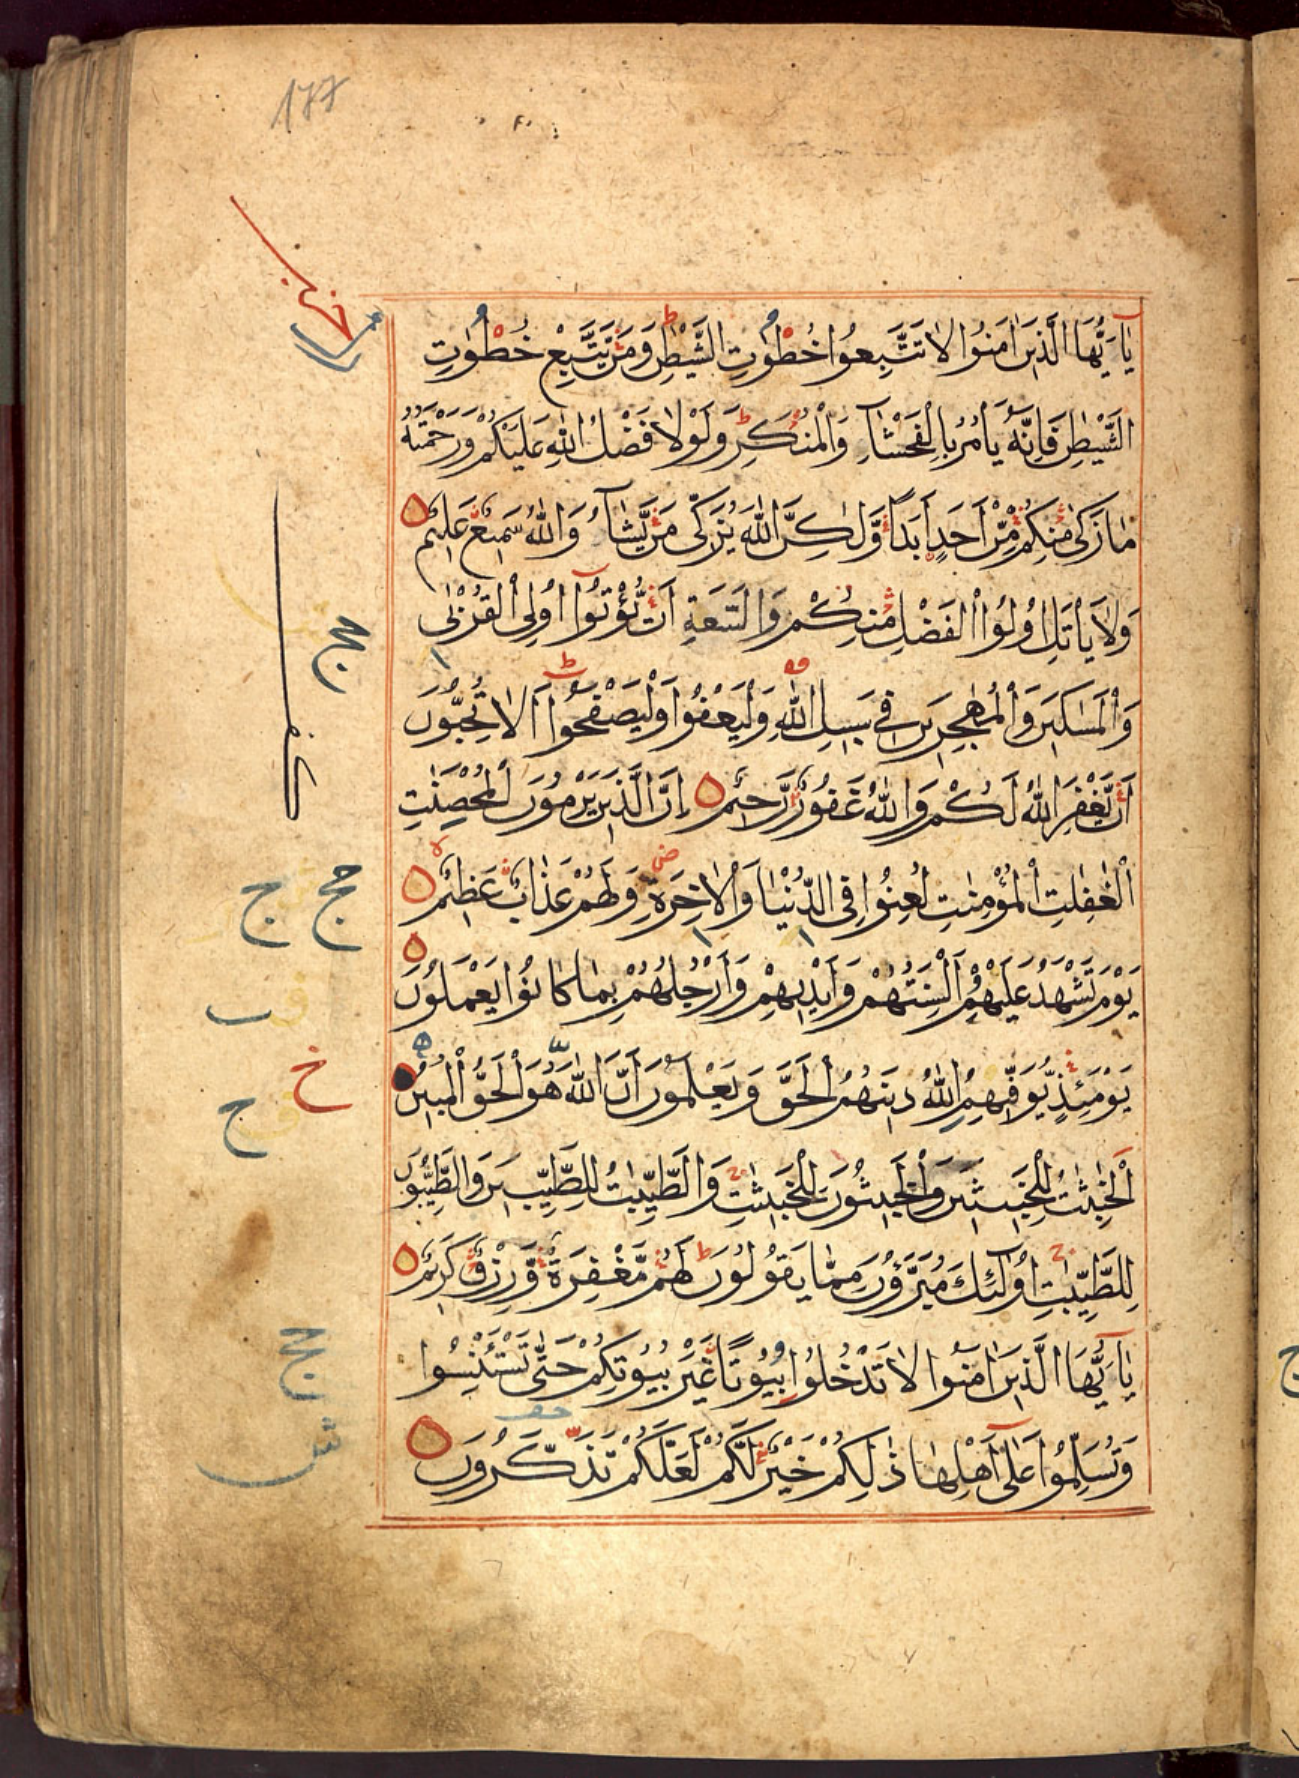 يٰاَيُّهَا الَّذِينَ اٰمَنُوا لَا تَتَّبِعُوا خُطُوٰتِ الشَّيْطٰنِ وَمَنْ يَّتَّبِعْ خُطُوٰتِ
الشَّيْطٰنِ فَاِنَّهُ يَاْمُرُ بِالْفَحْشَآءِ وَالْمُنْكَرِ وَلَوْلَا فَضْلُ اللّٰهِ عَلَيْكُمْ وَرَحْمَتُهُ
مَا زَكٰى مِنْكُمْ مِّنْ اَحَدٍ اَبَدًا وَّلٰكِنَّ اللّٰهَ يُزَكِّى مَنْ يَّشَآءُ وَاللّٰهُ سَمِيْعٌ عَلِيْمٌ
وَلَا يَاْتَلِ اُولُوا الْفَضْلِ مِنْكُمْ وَالسَّعَةِ اَنْ يُّؤْتُوْٓا اُولِى الْقُرْبٰى
وَالْمَسٰكِيْنَ وَالْمُهٰجِرِيْنَ فِى سَبِيْلِ اللّٰهِ وَلْيَعْفُوْا وَلْيَصْفَحُوْا اَلَا تُحِبُّوْنَ
اَنْ يَّغْفِرَ اللّٰهُ لَكُمْ وَاللّٰهُ غَفُوْرٌ رَّحِيْمٌ اِنَّ الَّذِيْنَ يَرْمُوْنَ الْمُحْصَنٰتِ
الْغٰفِلٰتِ الْمُؤْمِنٰتِ لُعِنُوْا فِى الدُّنْيَا وَالْاٰخِرَةِ وَلَهُمْ عَذَابٌ عَظِيْمٌ
يَوْمَ تَشْهَدُ عَلَيْهِمْ اَلْسِنَتُهُمْ وَاَيْدِيْهِمْ وَاَرْجُلُهُمْ بِمَا كَانُوْا يَعْمَلُوْنَ
يَوْمَئِذٍ يُّوَفِّيْهِمُ اللّٰهُ دِيْنَهُمُ الْحَقَّ وَيَعْلَمُوْنَ اَنَّ اللّٰهَ هُوَ الْحَقُّ الْمُبِيْنُ
اَلْخَبِيْثٰتُ لِلْخَبِيْثِيْنَ وَالْخَبِيْثُوْنَ لِلْخَبِيْثٰتِ وَالطَّيِّبٰتُ لِلطَّيِّبِيْنَ وَالطَّيِّبُوْنَ
لِلطَّيِّبٰتِ اُولٰٓئِكَ مُبَرَّؤُنَ مِمَّا يَقُوْلُوْنَ لَهُمْ مَّغْفِرَةٌ وَّرِزْقٌ كَرِيْمٌ
يٰاَيُّهَا الَّذِيْنَ اٰمَنُوا لَا تَدْخُلُوا بُيُوْتًا غَيْرَ بُيُوْتِكُمْ حَتّٰى تَسْتَئْنِسُوا
وَتُسَلِّمُوْا عَلٰٓى اَهْلِهَا ذٰلِكُمْ خَيْرٌ لَّكُمْ لَعَلَّكُمْ تَذَكَّرُوْنَ